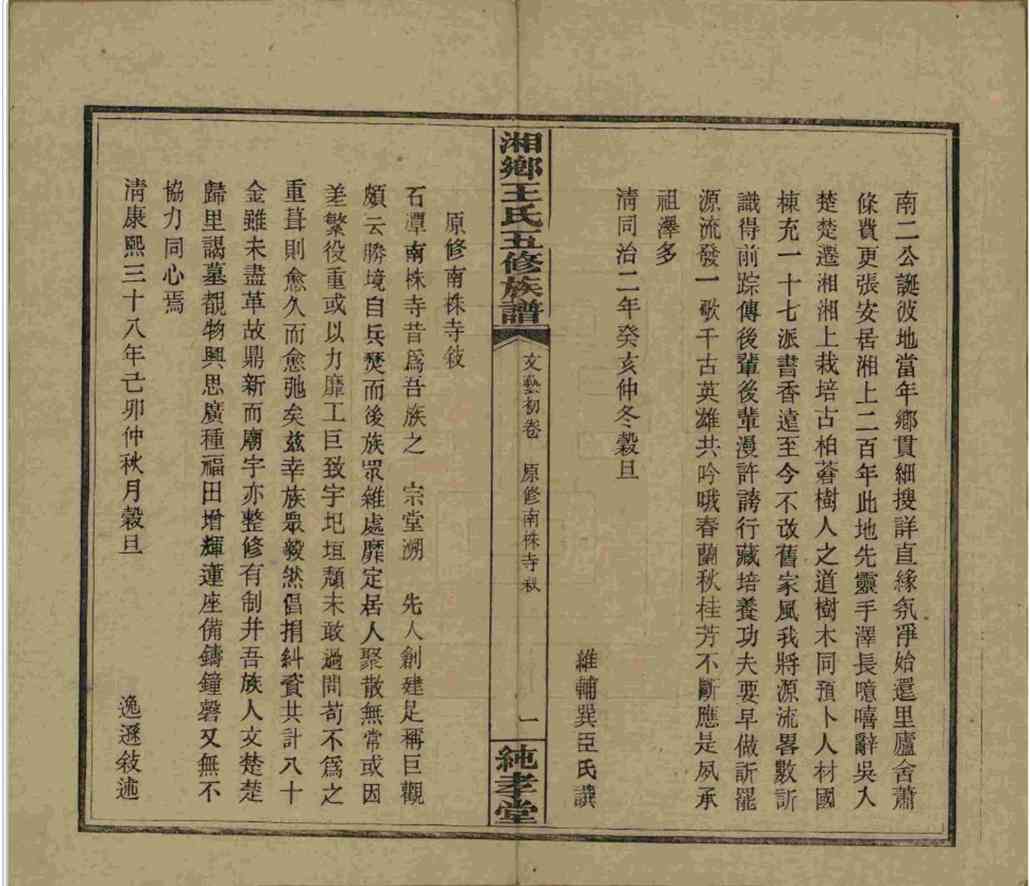 南二公誕彼地當年鄉貫細搜詳直緣氛凈始還里廬舍蕭
條費更張安居湘上二百年此地先靈手澤長噫嘻辭吳入
楚楚遷湘湘上栽培古柏蒼樹人之道樹木同預卜人材國
棟充一十七派書香遠至今不改舊家風我將源流畧數訴
識得前踪傳後輩後輩漫許誇行藏培養功夫要早做訴罷
源流發一歌千古英雄共吟哦春蘭秋桂芳不斷應是夙承
祖澤多
淸同治二年癸亥仲冬穀旦
維輔巽臣氏譔
湘鄉王氏五修族譜
文藝初卷 原修南株寺敍
一
純孝堂
原修南株寺敍
石潭南株寺昔爲吾族之 宗堂溯 先人創建足稱巨觀
頗云勝境自兵焚而後族眾雜處靡定居人聚散無常或因
差繁役重或以力靡工巨致宇圮垣頹未敢過問苟不爲之
重葺則愈久而愈弛矣兹幸族眾毅然倡捐糾資共計八十
金雖未盡革故鼎新而廟宇亦整修有制并吾族人文楚楚
歸里謁墓覩物興思廣種福田增輝蓮座備鑄鐘磬又無不
協力同心焉
淸康熙三十八年己卯仲秋月穀旦
逸遯敍述